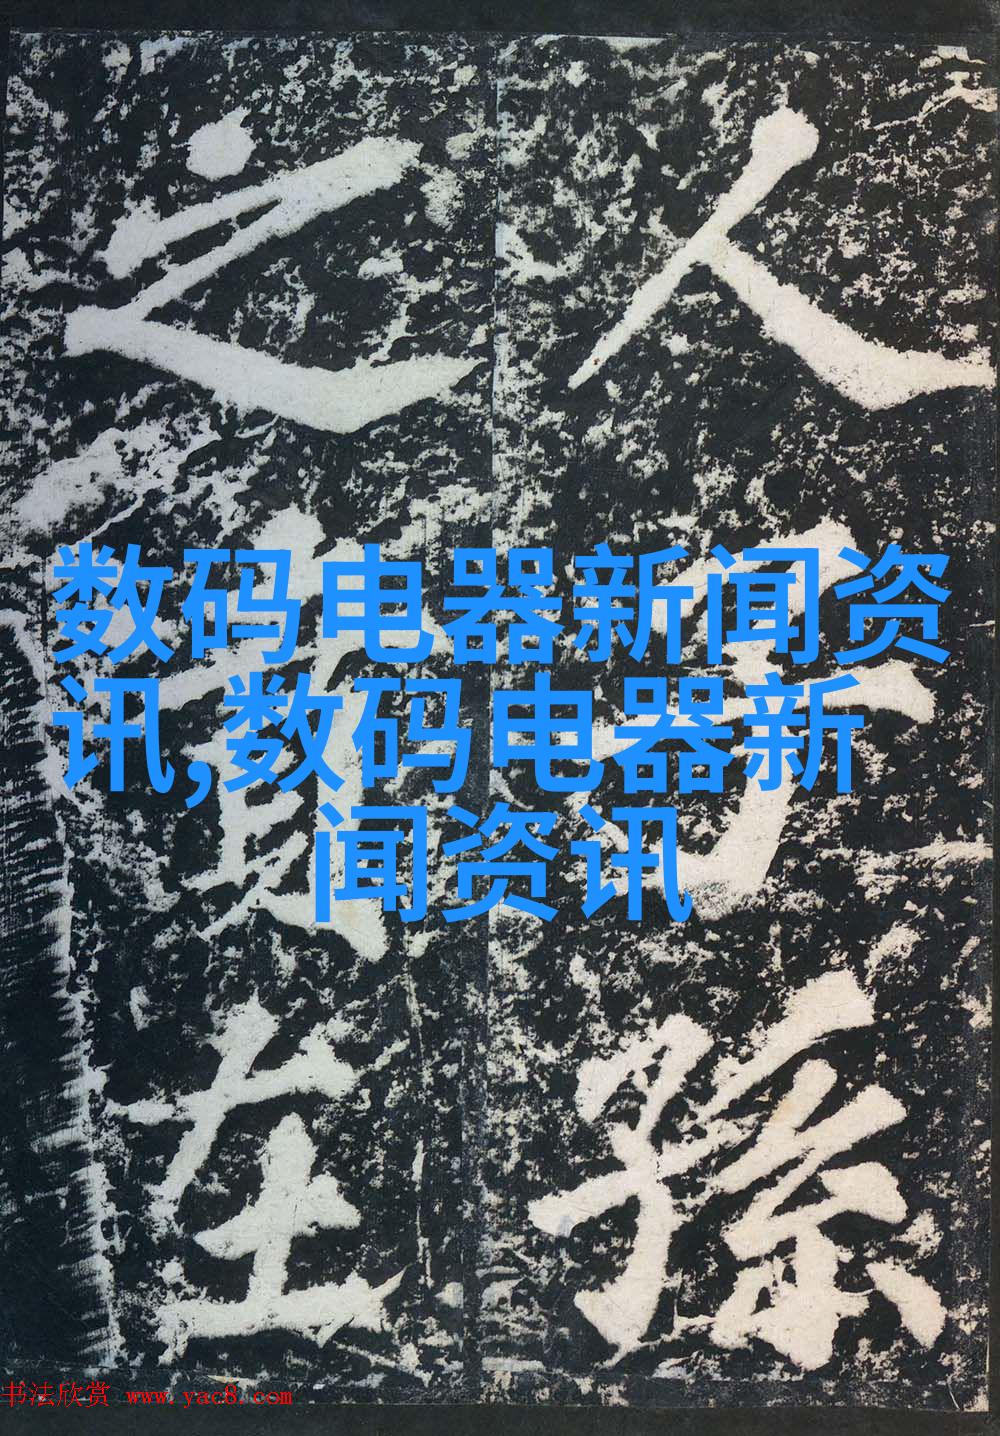 数码电器新闻资
讯,数码电器新
闻资讯
人子孫
之在
书法欣赏 www.yac8.com